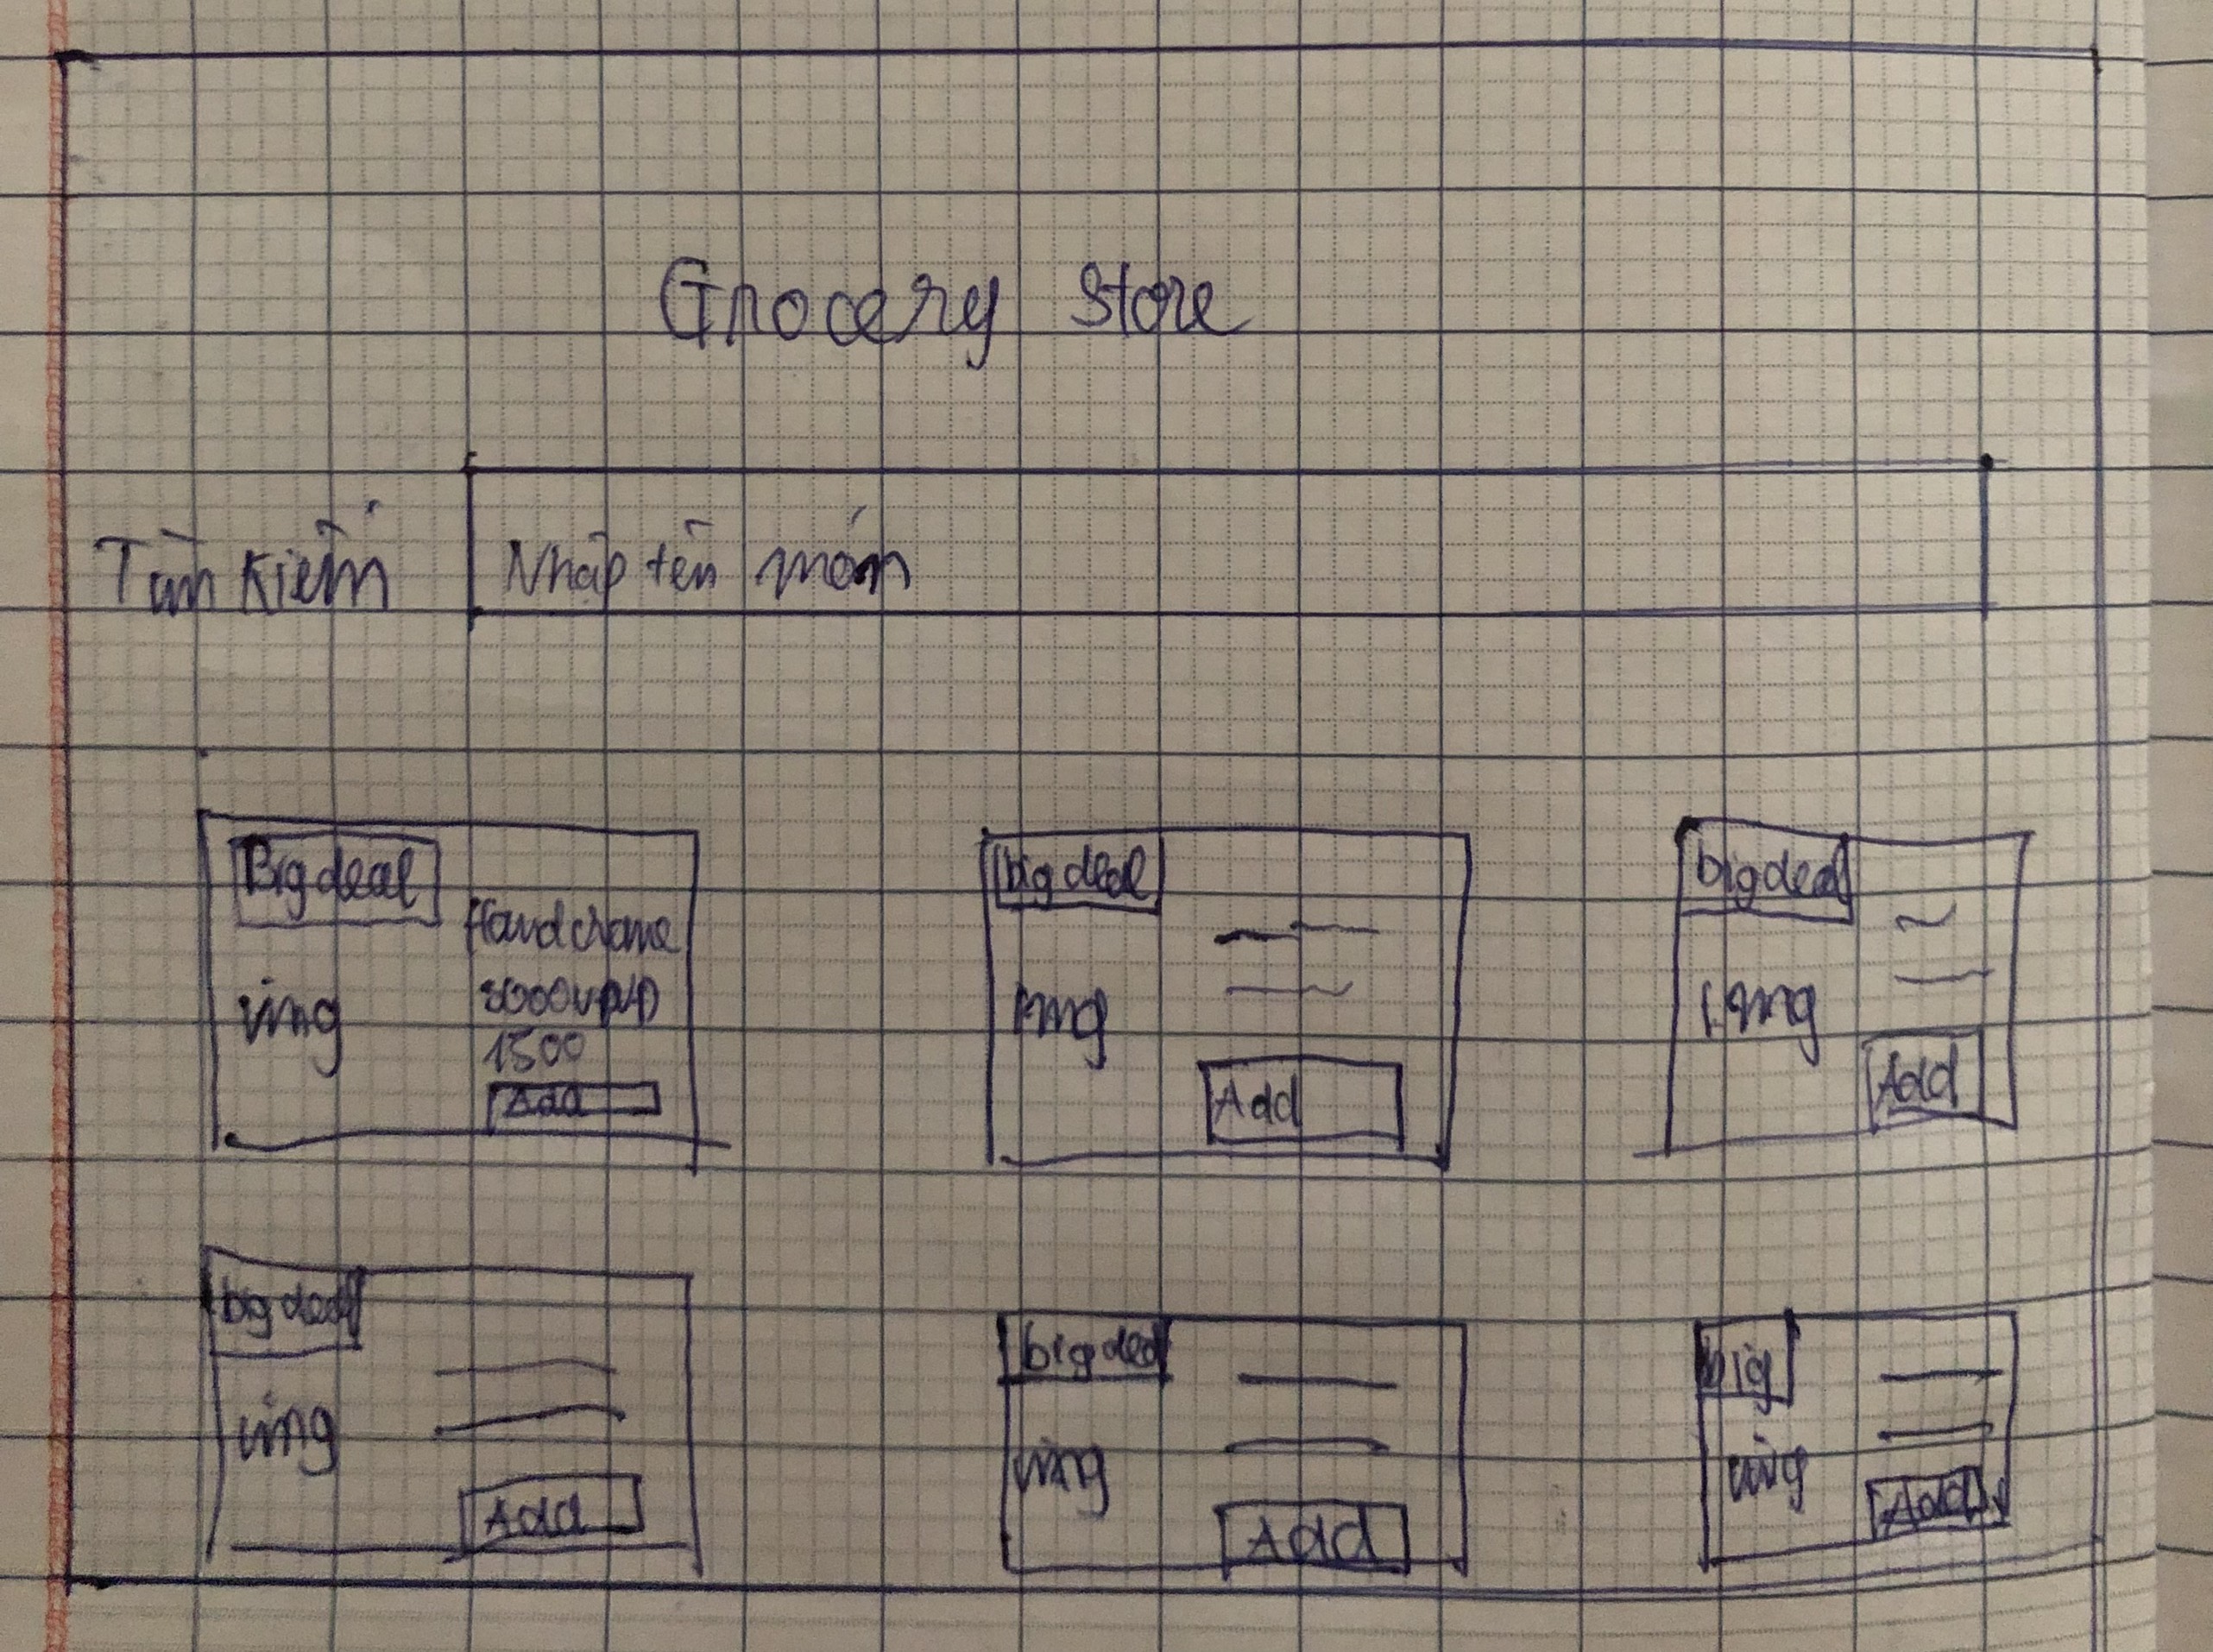 Grocery Store
Tìm kiếm
Nhập tên món
Big deal
Hand crame
img
1500
Add
big deal
img
Add
big deal
img
Add
big deal
img
Add
big deal
img
Add
big
img
Add